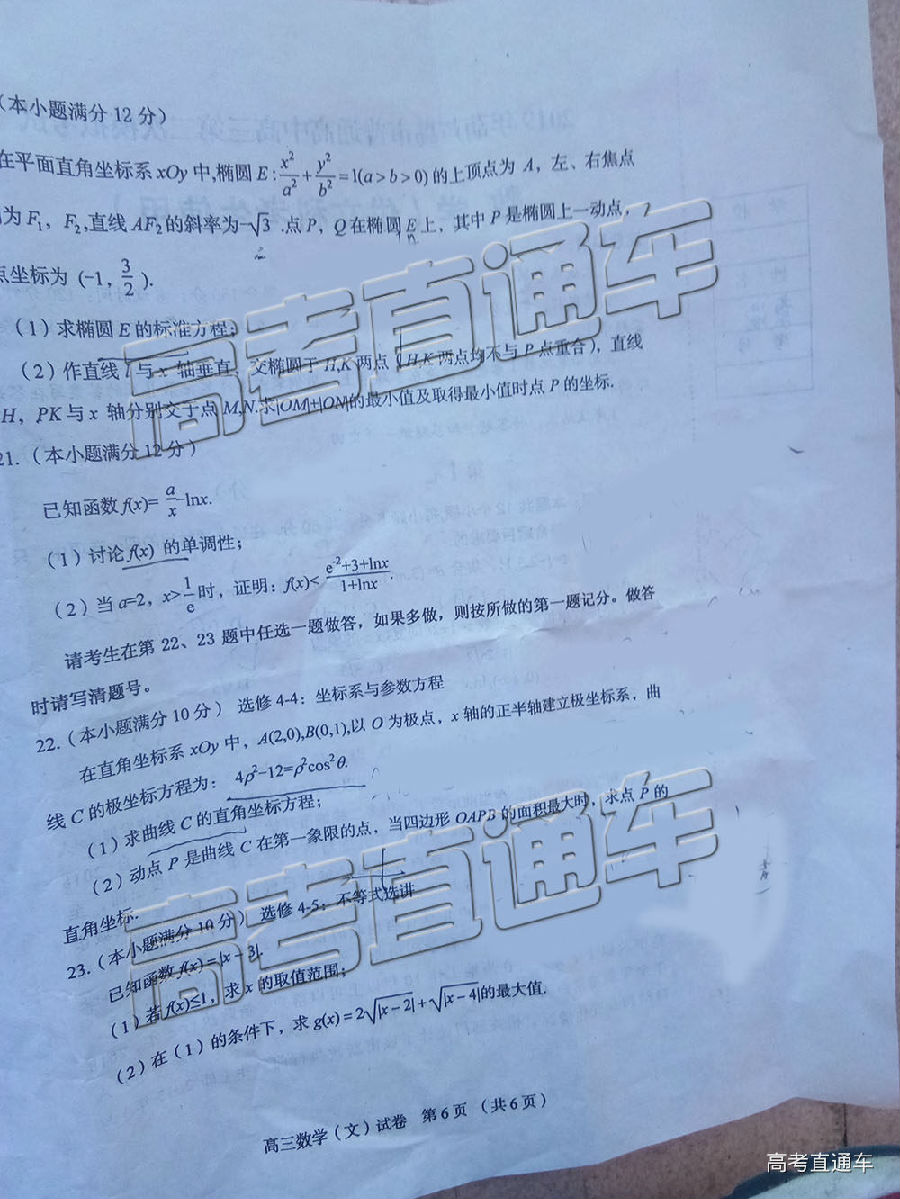 （本小题满分 12 分）
在平面直角坐标系 xOy 中,椭圆 E : x²/a² + y²/b² = 1(a > b > 0) 的上顶点为 A，左、右焦点
为 F₁，F₂,直线 AF₂的斜率为-√3 .点 P，Q在椭圆 E 上，其中 P 是椭圆上一动点，
点坐标为 (-1, 3/2 ).
（1）求椭圆 E 的标准方程;
（2）作直线 l 与 x 轴垂直，交椭圆于 H,K 两点（H,K 两点均不与 P 点重合），直线
H，PK 与 x 轴分别交于点 M,N.求|OM|+|ON|的最小值及取得最小值时点 P 的坐标.
21.（本小题满分 12 分）
已知函数 f(x)= a/x -lnx.
（1）讨论 f(x) 的单调性;
（2）当 a=2，x> 1/e 时，证明: f(x)< (e⁻²+3+lnx)/(1+lnx) .
请考生在第 22、23 题中任选一题做答，如果多做，则按所做的第一题记分。做答
时请写清题号。
22.（本小题满分 10 分） 选修 4-4: 坐标系与参数方程
在直角坐标系 xOy 中，A(2,0),B(0,1),以 O 为极点，x 轴的正半轴建立极坐标系，曲
线 C 的极坐标方程为: 4ρ²-12=ρ²cos²θ.
（1）求曲线 C 的直角坐标方程;
（2）动点 P 是曲线 C 在第一象限的点，当四边形 OAPB 的面积最大时，求点 P 的
直角坐标.
23.（本小题满分 10 分） 选修 4-5: 不等式选讲
已知函数 f(x) = |x - 3|.
（1）若 f(x)≤1，求 x 的取值范围;
（2）在（1）的条件下，求 g(x) = 2√|x-2| + √|x-4|的最大值.
高三数学（文）试卷 第 6 页 （共 6 页）
高考直通车
高考直通车
高考直通车